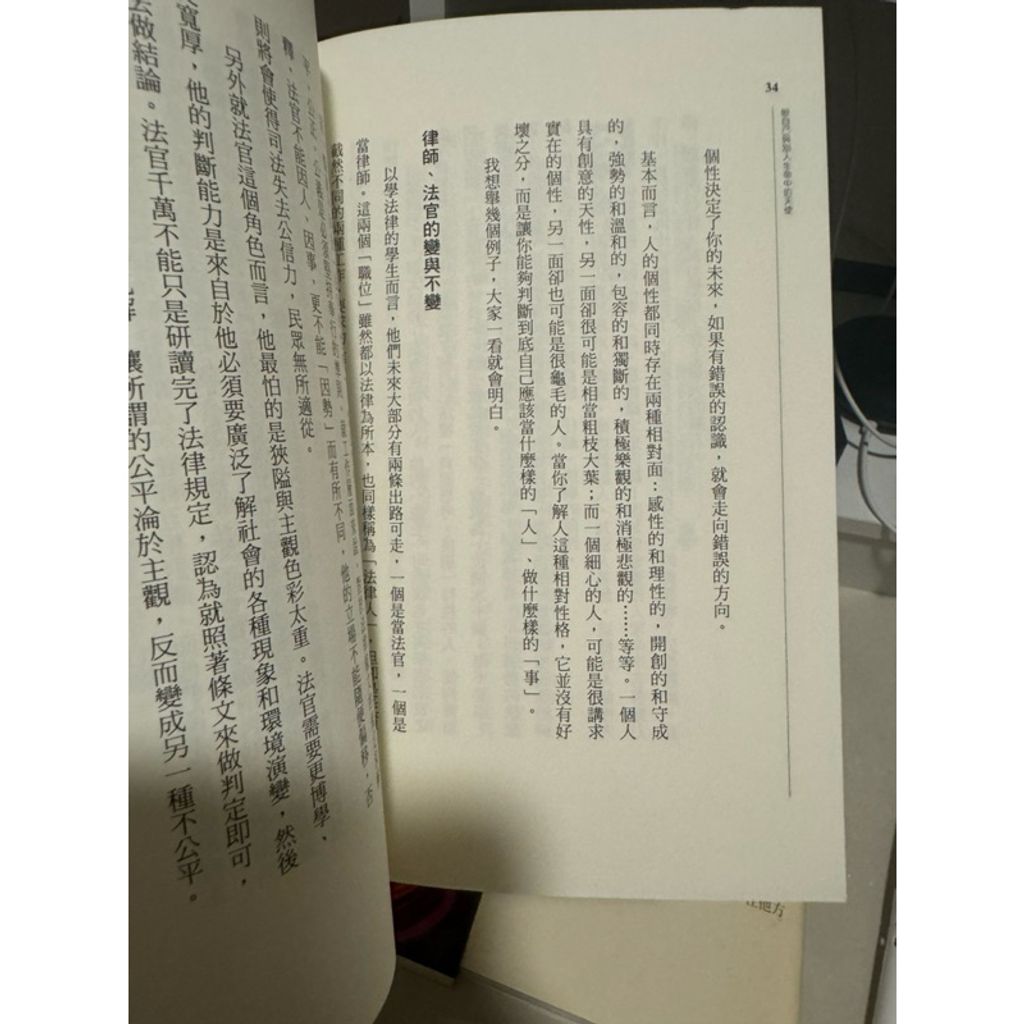 34
個性決定了你的未來，如果有錯誤的認識，就會走向錯誤的方向。
基本而言，人的個性都同時存在兩種相對面：感性的和理性的，開創的和守成
的，強勢的和溫和的，包容的和獨斷的，積極樂觀的和消極悲觀的……等等。一個人
具有創意的天性，另一面卻很可能是相當粗枝大葉；而一個細心的人，可能是很講求
實在的個性，另一面卻也可能是很龜毛的人。當你了解人這種相對性格，它並沒有好
壞之分，而是讓你能夠判斷到底自己應該當什麼樣的「人」、做什麼樣的「事」。
我想舉幾個例子，大家一看就會明白。
律師、法官的變與不變
以學法律的學生而言，他們未來大部分有兩條出路可走，一個是當法官，一個是
當律師。這兩個「職位」雖然都以法律為所本，也同樣稱為「法律人」
截然不同的兩種工作
釋，法官不能因人、因事，更不能「因勢」而有所不同，他的立場不能隨便偏移，否
則將會使得司法失去公信力，民眾無所適從。
另外就法官這個角色而言，他最怕的是狹隘與主觀色彩太重。法官需要更博學、
寬厚，他的判斷能力是來自於他必須要廣泛了解社會的各種現象和環境演變，然後
去做結論。法官千萬不能只是研讀完了法律規定，認為就照著條文來做判定即可，
讓所謂的公平淪於主觀，反而變成另一種不公平。
在他方